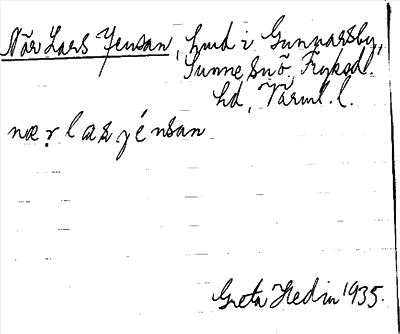 När Lars Jensan, hmd i Gunnarsby,
Sunne snõ, Fryksd.
hd, Värml. l.
næṛ laṣ yénsan
Greta Hedin 1935.